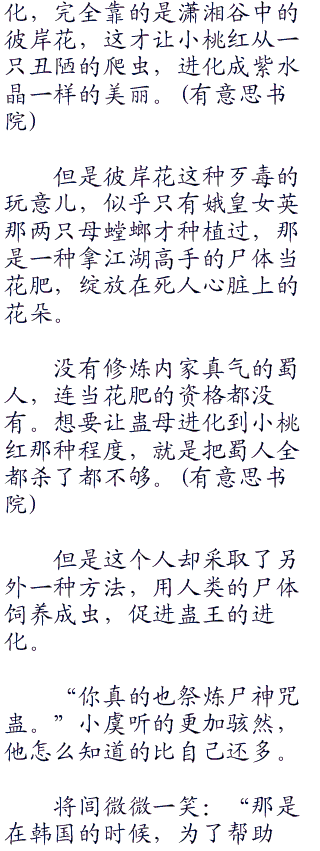 化，完全靠的是潇湘谷中的
彼岸花，这才让小桃红从一
只丑陋的爬虫，进化成紫水
晶一样的美丽。(有意思书
院)
但是彼岸花这种歹毒的
玩意儿，似乎只有娥皇女英
那两只母螳螂才种植过，那
是一种拿江湖高手的尸体当
花肥，绽放在死人心脏上的
花朵。
没有修炼内家真气的蜀
人，连当花肥的资格都没
有。想要让蛊母进化到小桃
红那种程度，就是把蜀人全
都杀了都不够。(有意思书
院)
但是这个人却采取了另
外一种方法，用人类的尸体
饲养成虫，促进蛊王的进
化。
“你真的也祭炼尸神咒
蛊。”小虞听的更加骇然，
他怎么知道的比自己还多。
将闾微微一笑：“那是
在韩国的时候，为了帮助